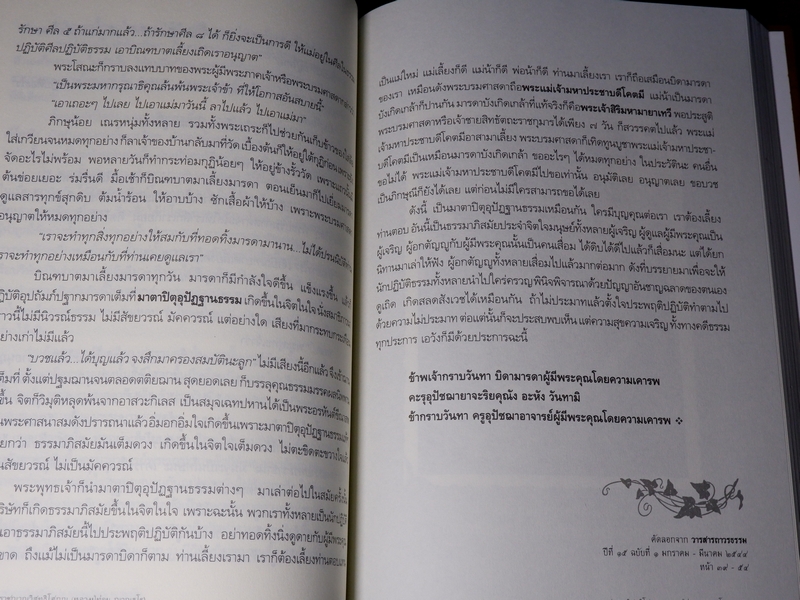 รักษา ศีล ๕ ถ้าแก่มากแล้ว...ถ้ารักษาศีล ๘ ได้ ก็ยิ่งจะเป็นการดี ให้แม่อยู่ในศีลในธรรม
ปฏิบัติศีลปฏิบัติธรรม เอาบิณฑบาตเลี้ยงเถิดเราอนุญาต"
พระโสณะก็กราบลงแทบบาทของพระผู้มีพระภาคเจ้าหรือพระบรมศาสดา
"เป็นพระมหากรุณาธิคุณล้นพ้นพระเจ้าข้า ที่ให้โอกาสอันสบายนี้-
"เอาเถอะๆ ไปเลย ไปเอาแม่มาวันนี้ ลาไปแล้ว ไปเอาแม่มา"
ภิกษุน้อย เณรหนุ่มทั้งหลาย รวมทั้งพระเถระก็ไปช่วยกันเก็บข้าวของ
ใส่เกวียนจนหมดทุกอย่าง ก็ลาเจ้าของบ้านกลับมาที่วัด เบื้องต้นก็ให้อยู่ใต้กุฏิก่อน
จัดอะไรไม่พร้อม พอหลายวันก็ทำกระท่อมกุฏิน้อยๆ ให้อยู่ข้างรั้ววัด
ันช่วยเยอะ ร่มรื่นดี มื้อเช้าก็บิณฑบาตมาเลี้ยงมารดา ตอนเย็นมาก็ไปเยี่ยม
ดูแลสารทุกข์สุกดิบ ต้มน้ำร้อน ให้อาบบ้าง ซักเสื้อผ้าให้บ้าง เพราะพระบรมศาสดา
อนุญาตให้หมดทุกอย่าง
"เราจะทำทุกสิ่งทุกอย่างให้สมกับที่ทอดทิ้งมารดามานาน...ไม่ได้ปรนนิบัติ
ราจะทำทุกอย่างเหมือนกับที่ท่านเคยดูแลเรา"
บิณฑบาตมาเลี้ยงมารดาทุกวัน มารดาก็มีกำลังใจดีขึ้น แข็งแรงขึ้น
ฏิบัติอุปถัมภ์ปฐากมารดาเต็มที่ มาตาปิตุอุปัฏฐานธรรม เกิดขึ้นในจิตในใจ
าวนี้ไม่มีนิวรณ์ธรรม ไม่มีสัขยวรณ์ มัคควรณ์ แต่อย่างใด เสียงที่มากระทบ
ย่างเก่าไม่มีแล้ว
"บวชแล้ว...ได้บุญแล้ว จงสึกมาครองสมบัตินะลูก" ไม่มีเสียงนี้อีกแล้ว
ต็มที่ ตั้งแต่ปฐมฌานจนตลอดตติยฌาน สุดยอดเลย ก็บรรลุคุณธรรมมรรคผล
ขึ้น จิตก็วิมุติหลุดพ้นจากอาสวะกิเลส เป็นสมุจเฉทปหานได้เป็นพระอรหันต์
นพระศาสนาสมดังปรารถนาแล้วอิ่มอกอิ่มใจเกิดขึ้นเพราะมาตาปิตุอุปัฏฐานธรรม
ยกว่า ธรรมาภิสมัยมันเต็มดวง เกิดขึ้นในจิตใจเต็มดวง ไม่ตะขิดตะขวางใจ
นสัขยวรณ์ ไม่เป็นมัคควรณ์
พระพุทธเจ้าก็นำมาตาปิตุอุปัฏฐานธรรมต่างๆ มาเล่าต่อไปในสมัย
ริษัทก็เกิดธรรมาภิสมัยขึ้นในจิตในใจ เพราะฉะนั้น พวกเราทั้งหลายเป็นนักปฏิบัติ
เอาธรรมาภิสมัยนี้ไปประพฤติปฏิบัติกันบ้าง อย่าทอดทิ้งนิ่งดูดายกับผู้มีพระคุณ
ขาด ถึงแม้ไม่เป็นมารดาบิดาก็ตาม ท่านเลี้ยงเรามา เราก็ต้องเลี้ยงท่านตอบแทน
เป็นแม่ใหม่ แม่เลี้ยงก็ดี แม่น้าก็ดี พ่อน้าก็ดี ท่านมาเลี้ยงเรา เราก็ถือเสมือนบิดามารดา
ของเรา เหมือนดังพระบรมศาสดาถือพระแม่เจ้ามหาประชาบดีโคตมี แม่น้าเป็นมารดา
บังเกิดเกล้าก็ปานกัน มารดาบังเกิดเกล้าที่แท้จริงก็คือพระเจ้าสิริมหามายาเทวี พอประสูติ
พระบรมศาสดาหรือเจ้าชายสิทธัตถะราชกุมารได้เพียง ๗ วัน ก็สวรรคตไปแล้ว พระแม่
เจ้ามหาประชาบดีโคตมีอาสามาเลี้ยง พระบรมศาสดาก็เทิดทูนบูชาพระแม่เจ้ามหาประชา-
บดีโคตมีเป็นเหมือนมารดาบังเกิดเกล้า ขออะไรๆ ได้หมดทุกอย่าง ในประวัตินะ คนอื่น
ขอไม่ได้ พระแม่เจ้ามหาประชาบดีโคตมีไปขอเท่านั้น อนุมัติเลย อนุญาตเลย ขอบวช
เป็นภิกษุณีก็ยังได้เลย แต่ก่อนไม่มีใครสามารถขอได้เลย
ดังนี้ เป็นมาตาปิตุอุปัฏฐานธรรมเหมือนกัน ใครมีบุญคุณต่อเรา เราต้องเลี้ยง
ท่านตอบ อันนี้เป็นธรรมาภิสมัยประจำจิตใจมนุษย์ทั้งหลายผู้เจริญ ผู้ดูแลผู้มีพระคุณเป็น
ผู้เจริญ ผู้อกตัญญูกับผู้มีพระคุณนั้นเป็นคนเสื่อม ได้ดิบได้ดีไปแล้วก็เสื่อมนะ แต่ได้ยก
นิทานมาเล่าให้ฟัง ผู้อกตัญญูทั้งหลายเสื่อมไปแล้วมากต่อมาก ดังที่บรรยายมาเพื่อจะให้
นักปฏิบัติธรรมทั้งหลายนำไปใคร่ครวญพินิจพิจารณาด้วยปัญญาอันชาญฉลาดของตนเอง
ดูเถิด เกิดสลดสังเวชได้เหมือนกัน ถ้าไม่ประมาทแล้วตั้งใจประพฤติปฏิบัติทำตามไป
ด้วยความไม่ประมาท ต่อแต่นั้นก็จะประสบพบเห็น แต่ความสุขความเจริญ ทั้งทางคดีธรรม
ทุกประการ เอวังก็มีด้วยประการฉะนี้
ข้าพเจ้ากราบวันทา บิดามารดาผู้มีพระคุณโดยความเคารพ
คะรุอุปัชฌายาจะริยคุณัง อะหัง วันทามิ
ข้ากราบวันทา ครูอุปัชฌาอาจารย์ผู้มีพระคุณโดยความเคารพ ❖
คัดลอกจาก วารสารถาวรธรรม
ปีที่ ๑๕ ฉบับที่ ๑ มกราคม - มีนาคม ๒๕๔๔
หน้า ๓๙ - ๕๔